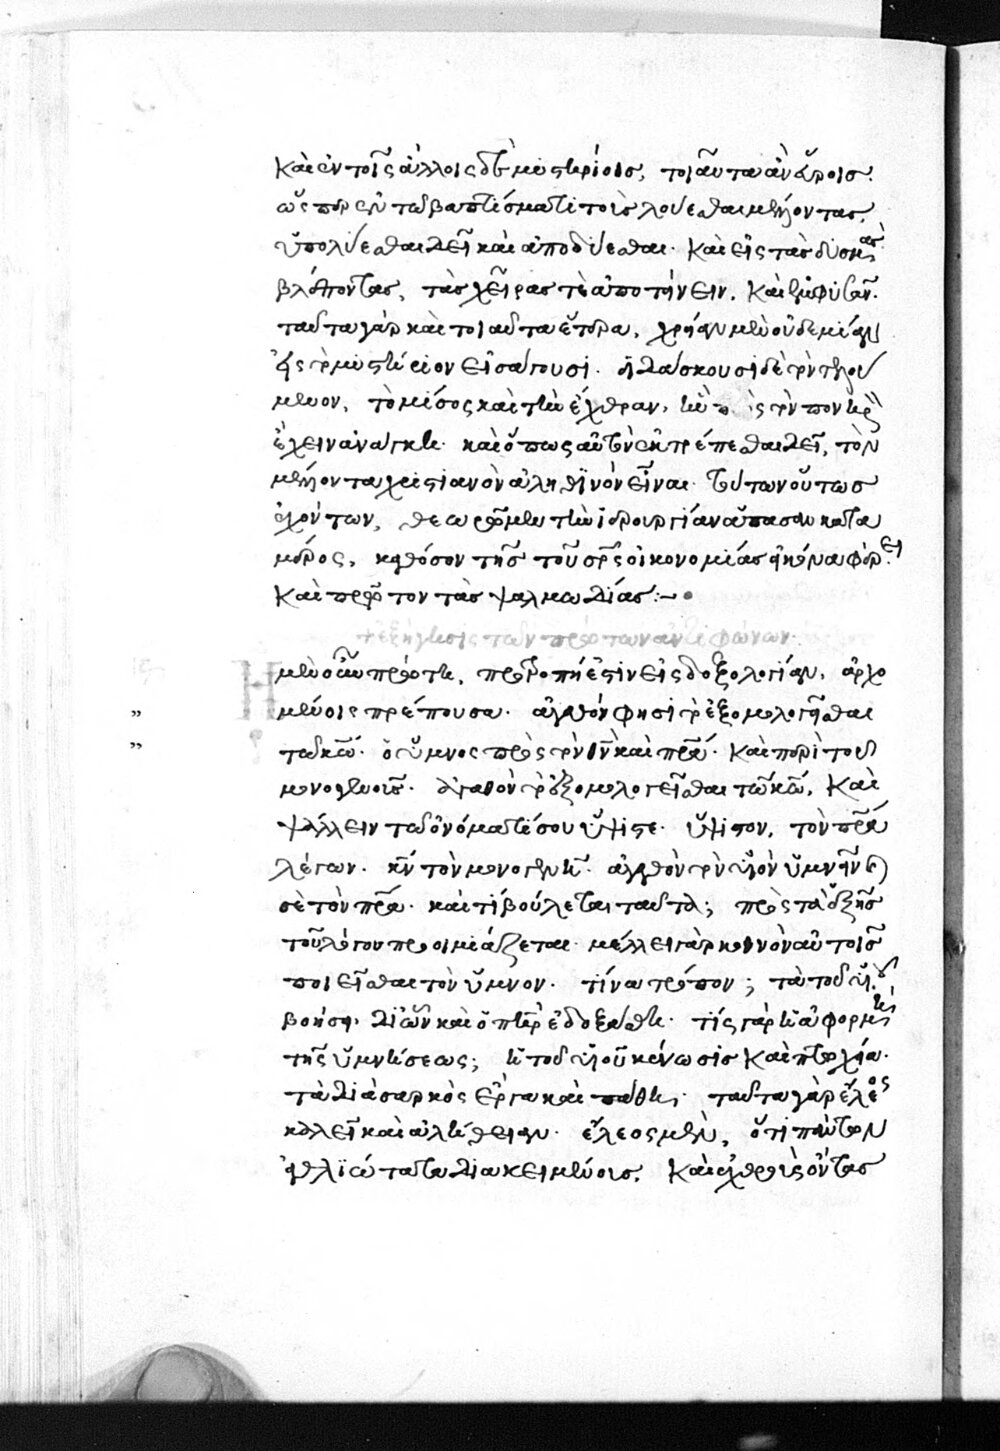 Καὶ ἐν τοῖς ἄλλοις δὲ μυστηρίοις, τοιαῦτα ἂν εὕροις.
ὥσπερ ἐν τῶ βαπτίσματι τοῖς λούεσθαι μέλλοντας,
ὑπολύεσθαι δεῖ καὶ ἀποδύεσθαι. Καὶ εἰς τὰς δύσμας
βλέποντας, τὰς χεῖρας τε ἀποτείνειν. Καὶ ἐμφυσᾶν.
ταῦτα γὰρ καὶ τοιαῦτα ἕτερα, χρείαν μὲν οὐδεμίαν
εἰς τὸ μυστήριον εἰσάγουσι. διδάσκουσι δὲ τὸν τελού
μενον, τὸ μίσος καὶ τὴν ἔχθραν, ἣν πρὸς τὸν πονηρὸν
ἔχειν ἀνάγκη. καὶ ὅπως αὐτὸν ἐκτρέπεσθαι δεῖ, τὸν
μέλλοντα χριστιανὸν ἀληθινὸν εἶναι. τούτων οὕτως
ἐχόντων, θεωρῶμεν τὴν ἱερουργίαν ἅπασαν κατὰ
μέρος, καθόσον τῆς τοῦ σρς οἰκονομίας εἰκόνα φέρει.
Καὶ πρῶτον τὰς ψαλμωδίας:-
+ ἐξήγησις τῶν πρώτων ἀντιφώνων.
Ἡ μὲν οὖν πρώτη, προτροπή ἐστιν εἰς δοξολογίαν, ἀρχο
μένοις πρέπουσα. ἀγαθόν φησι τὸ ἐξομολογεῖσθαι
τῶ κω. ὁ ὕμνος πρὸς τὸν υν καὶ πρα. Καὶ περὶ τοῦ
μονογενοῦς. ἀγαθὸν τὸ ἐξομολογεῖσθαι τῶ κω, Καὶ
ψάλλειν τῶ ὀνόματί σου ὕψιστε. ὕψιστον, τὸν πρα
λέγων. κν τὸν μονογενῆ. ἀγαθὸν τὸν υἱὸν ὑμνεῖν καὶ
σὲ τὸν πρα. καὶ τί βούλεται ταῦτα; πρὸς τὰ ἑξῆς
τοῦ λόγου προοιμιάζεται. μέλλει γὰρ κοινὸν αὐτοῖς
ποιεῖσθαι τὸν ὕμνον. τίνα τρόπον; τὰ τοῦ υἱοῦ
βοήσει, δι' ὧν καὶ ὁ πηρ ἐδοξάσθη. τίς γὰρ ἡ ἀφορμὴ
τῆς ὑμνήσεως; ἡ τοῦ υἱοῦ κένωσις Καὶ πτωχεία.
τὰ διὰ σαρκὸς ἔργα καὶ πάθη. ταῦτα γὰρ ἔλεος
καλεῖ καὶ ἀλήθειαν. ἔλεος μὲν, ὅτι πάντων
ἀθλιώτατα διακειμένοις, Καὶ ἐχθροὺς ὄντας